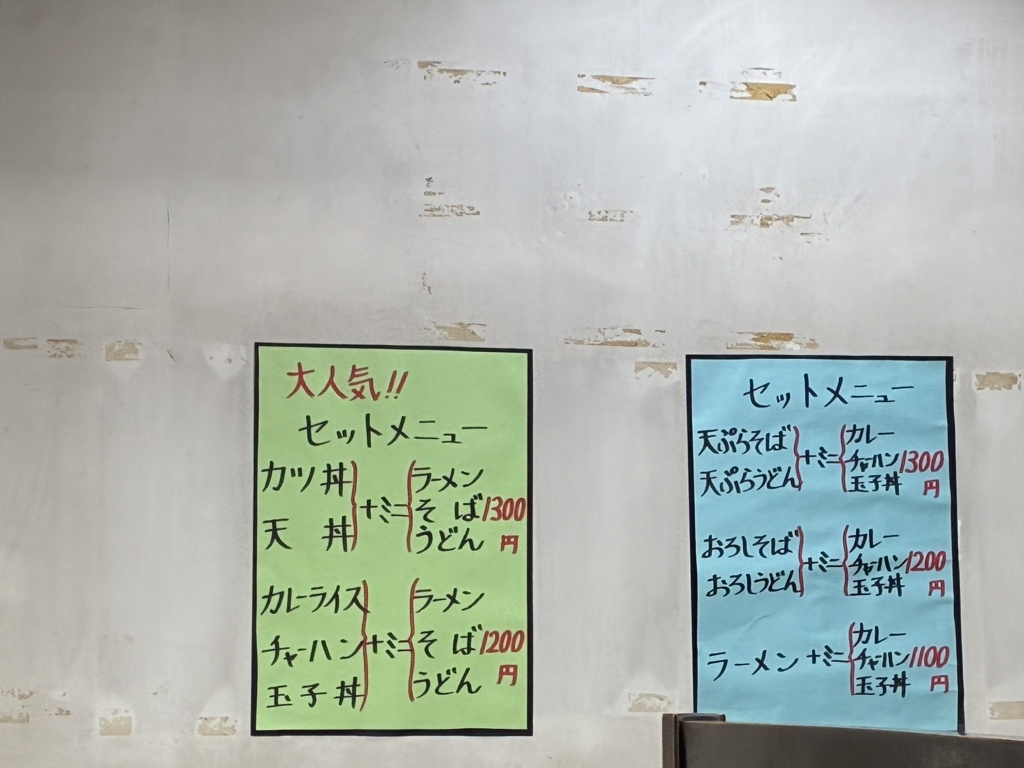 大人気!!
セットメニュー
カツ丼
天 丼
+ミニ
ラーメン
そ ば
うどん
1300
円
カレーライス
チャーハン
玉子丼
+ミニ
ラーメン
そ ば
うどん
1200
円
セットメニュー
天ぷらそば
天ぷらうどん
+ミニ
カレー
チャーハン
玉子丼
1300
円
おろしそば
おろしうどん
+ミニ
カレー
チャーハン
玉子丼
1200
円
ラーメン
+ミニ
カレー
チャーハン
玉子丼
1100
円